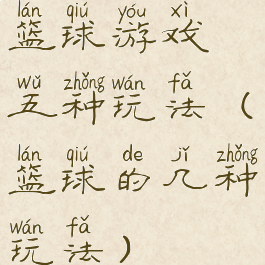 lán qiú yóu xì
篮球游戏
wǔ zhǒng wán fǎ
五种玩法（
lán qiú de jǐ zhǒng
篮球的几种
wán fǎ
玩法）